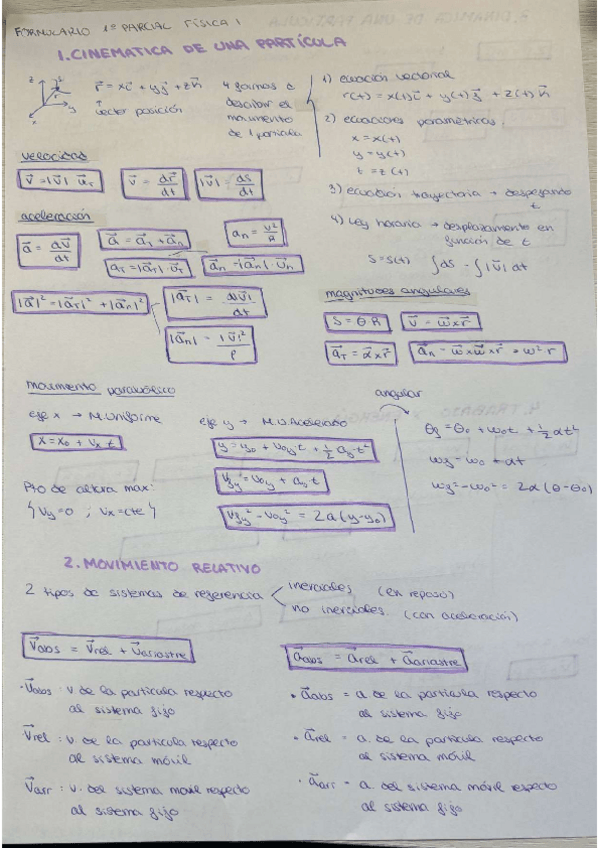 FORMULARIO 1º PARCIAL FÍSICA I
1. CINEMATICA DE UNA PARTÍCULA
z
y
x
r⃗ = xi⃗ + yj⃗ + zk⃗
vector posición
4 formas de
describir el
movimiento
de 1 partícula
1) ecuación vectorial
r(t) = x(t)i⃗ + y(t)j⃗ + z(t)k⃗
2) ecuaciones paramétricas
x = x(t)
y = y(t)
z = z(t)
3) ecuación trayectoria → despejando t
4) Ley horaria → desplazamiento en
función de t
S = S(t) ∫dS = ∫|v⃗| dt
velocidad
v⃗ = |v⃗| u⃗T
v⃗ = dr⃗/dt
|v⃗| = ds/dt
aceleración
a⃗ = dv⃗/dt
a⃗ = a⃗T + a⃗n
an = v²/R
a⃗T = |a⃗T| · u⃗T
a⃗n = |a⃗n| · u⃗n
|a⃗|² = |a⃗T|² + |a⃗n|²
|a⃗T| = d|v⃗|/dt
|a⃗n| = |v⃗|²/ρ
magnitudes angulares
S = θ·R
v⃗ = w⃗×r⃗
a⃗T = α⃗×r⃗
a⃗n = w⃗×w⃗×r⃗ → w²·r
movimiento parabólico
eje x → M.Uniforme
x = x0 + vx·t
Pto de altura max:
{ vy = 0 ; vx = cte }
eje y → M.U.Acelerado
y = y0 + v0y·t + 1/2 ay·t²
vfy = v0y + ay·t
vfy² - v0y² = 2a(y-y0)
angular
θf = θ0 + w0t + 1/2 αt²
wf = w0 + αt
wf² - w0² = 2α(θ-θ0)
2. MOVIMIENTO RELATIVO
2 tipos de sistemas de referencia
inerciales (en reposo)
no inerciales. (con aceleración)
v⃗abs = v⃗rel + v⃗arrastre
a⃗abs = a⃗rel + a⃗arrastre
· v⃗abs: v de la partícula respecto
al sistema fijo
v⃗rel: v. de la partícula respecto
al sistema móvil
v⃗arr: v. del sistema movil respecto
al sistema fijo
· a⃗abs = a. de la partícula respecto
al sistema fijo
· a⃗rel = a. de la partícula respecto
al sistema móvil
· a⃗arr = a. del sistema móvil respecto
al sistema fijo